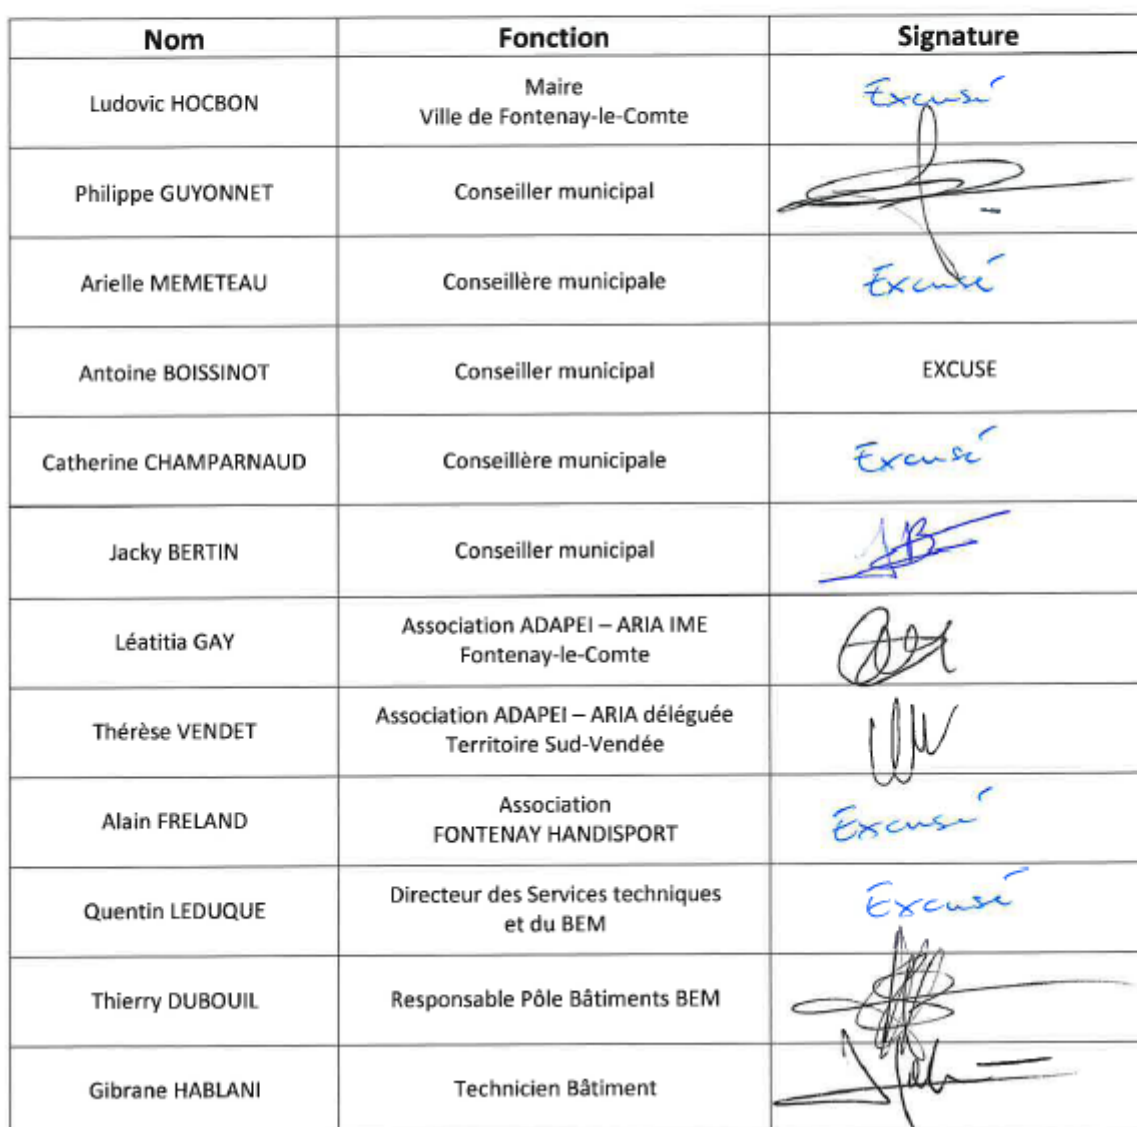 Nom Fonction Signature
Ludovic HOCBON Maire Excusé
Ville de Fontenay-le-Comte
Philippe GUYONNET Conseiller municipal
Arielle MEMETEAU Conseillère municipale Excusé
Antoine BOISSINOT Conseiller municipal EXCUSE
Catherine CHAMPARNAUD Conseillère municipale Excusé
Jacky BERTIN Conseiller municipal JB
Léatitia GAY Association ADAPEI – ARIA IME
Fontenay-le-Comte
Thérèse VENDET Association ADAPEI – ARIA déléguée
Territoire Sud-Vendée
Alain FRELAND Association Excusé
FONTENAY HANDISPORT
Quentin LEDUQUE Directeur des Services techniques Excusé
et du BEM
Thierry DUBOUIL Responsable Pôle Bâtiments BEM
Gibrane HABLANI Technicien Bâtiment